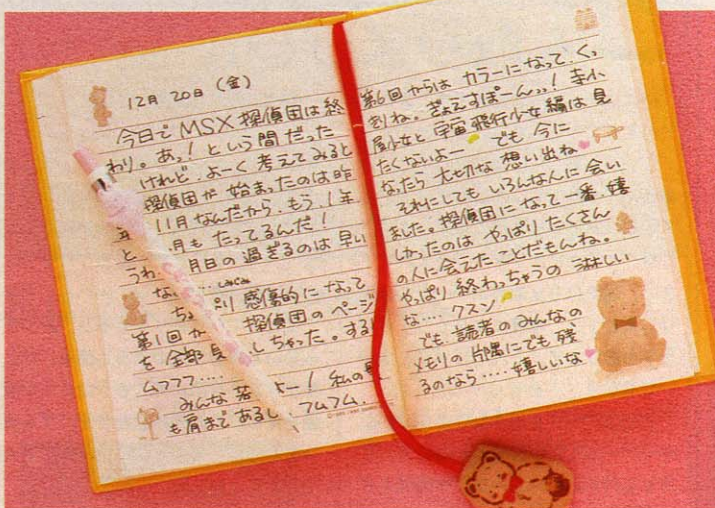 12月 20日 (金)
今日で MSX 探偵団は終
わり。あっ！という間だった
けれど、よーく 考えてみると
探偵団が 始まったのは昨
年 11月 なんだから、もう 1年
と 月も たってるんだ！
うわ 月日の 過ぎるのは 早い
な…… しみじみ
ちょ り 感傷的に なって
第1回か 探偵団の ページ
を 全部 見 しちゃった。する
ムフフフ……
みんな 若 よー！ 私の
も 肩まで あるし、フムフム。
第6回からは カラーになって、くっ
きりね。ぎょえすぽーん、、！ 幸小
屋少女と 宇宙飛行少女 編は 見
たくないよー でも 今に
なったら 大切な 想い出ね
それにしても いろんな人に 会い
ました。探偵団に なって一番 嬉
しかったのは やっぱり たくさん
の人に 会えた ことだもんね。
やっぱり 終わっちゃうの 淋しい
な…. クスン
でも、読者の みんなの
メモリの 片隅にでも 残
るのなら…. 嬉しいな